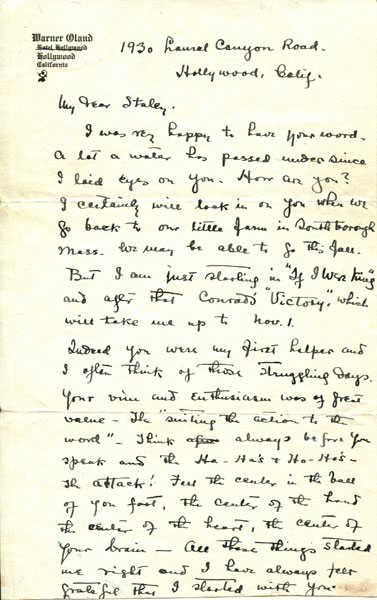 Warner Oland
Hotel Hollywood
Hollywood
California
1930 Laurel Canyon Road.
Hollywood, Calif.
My dear Staley.
I was very happy to have your word.
A lot a water has passed under since
I laid eyes on you. How are you?
I certainly will look in on you when we
go back to our little farm in Southborough
Mass. We may be able to go this fall.
But I am just starting in "If I Were King"
and after that Conrad's "Victory", which
will take me up to Nov. 1.
Indeed you were my first helper and
I often think of those struggling days.
Your vim and enthusiasm was of great
value - The "suiting the action to the
word" - Think always before you
speak and the Ha-Ha's & Ho-Ho's -
The attack! Feel the center in the ball
of you foot, the center of the hand
the center of the heart, the center of
your brain - All these things started
me right and I have always felt
grateful that I started with you.